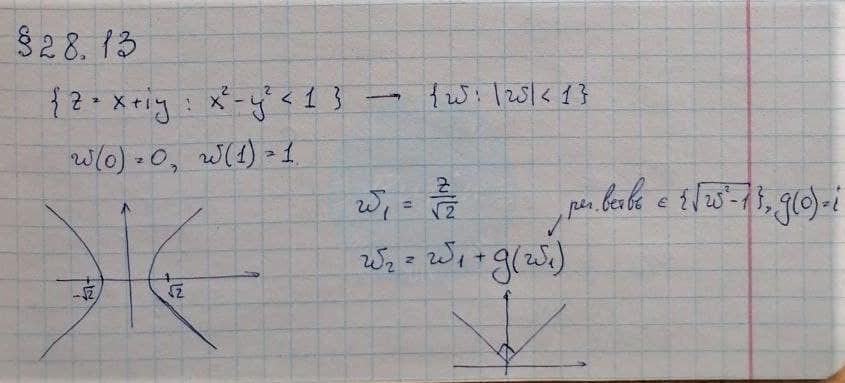 § 28.13
{ z = x + iy : x² - y² < 1 } → { w : |w| < 1 }
w(0) = 0, w(1) = 1.
w₁ = z/√2
рег. ветвь ∈ {√(w² - 1)}, g(0) = i
w₂ = w₁ + g(w₁)
-√2 √2